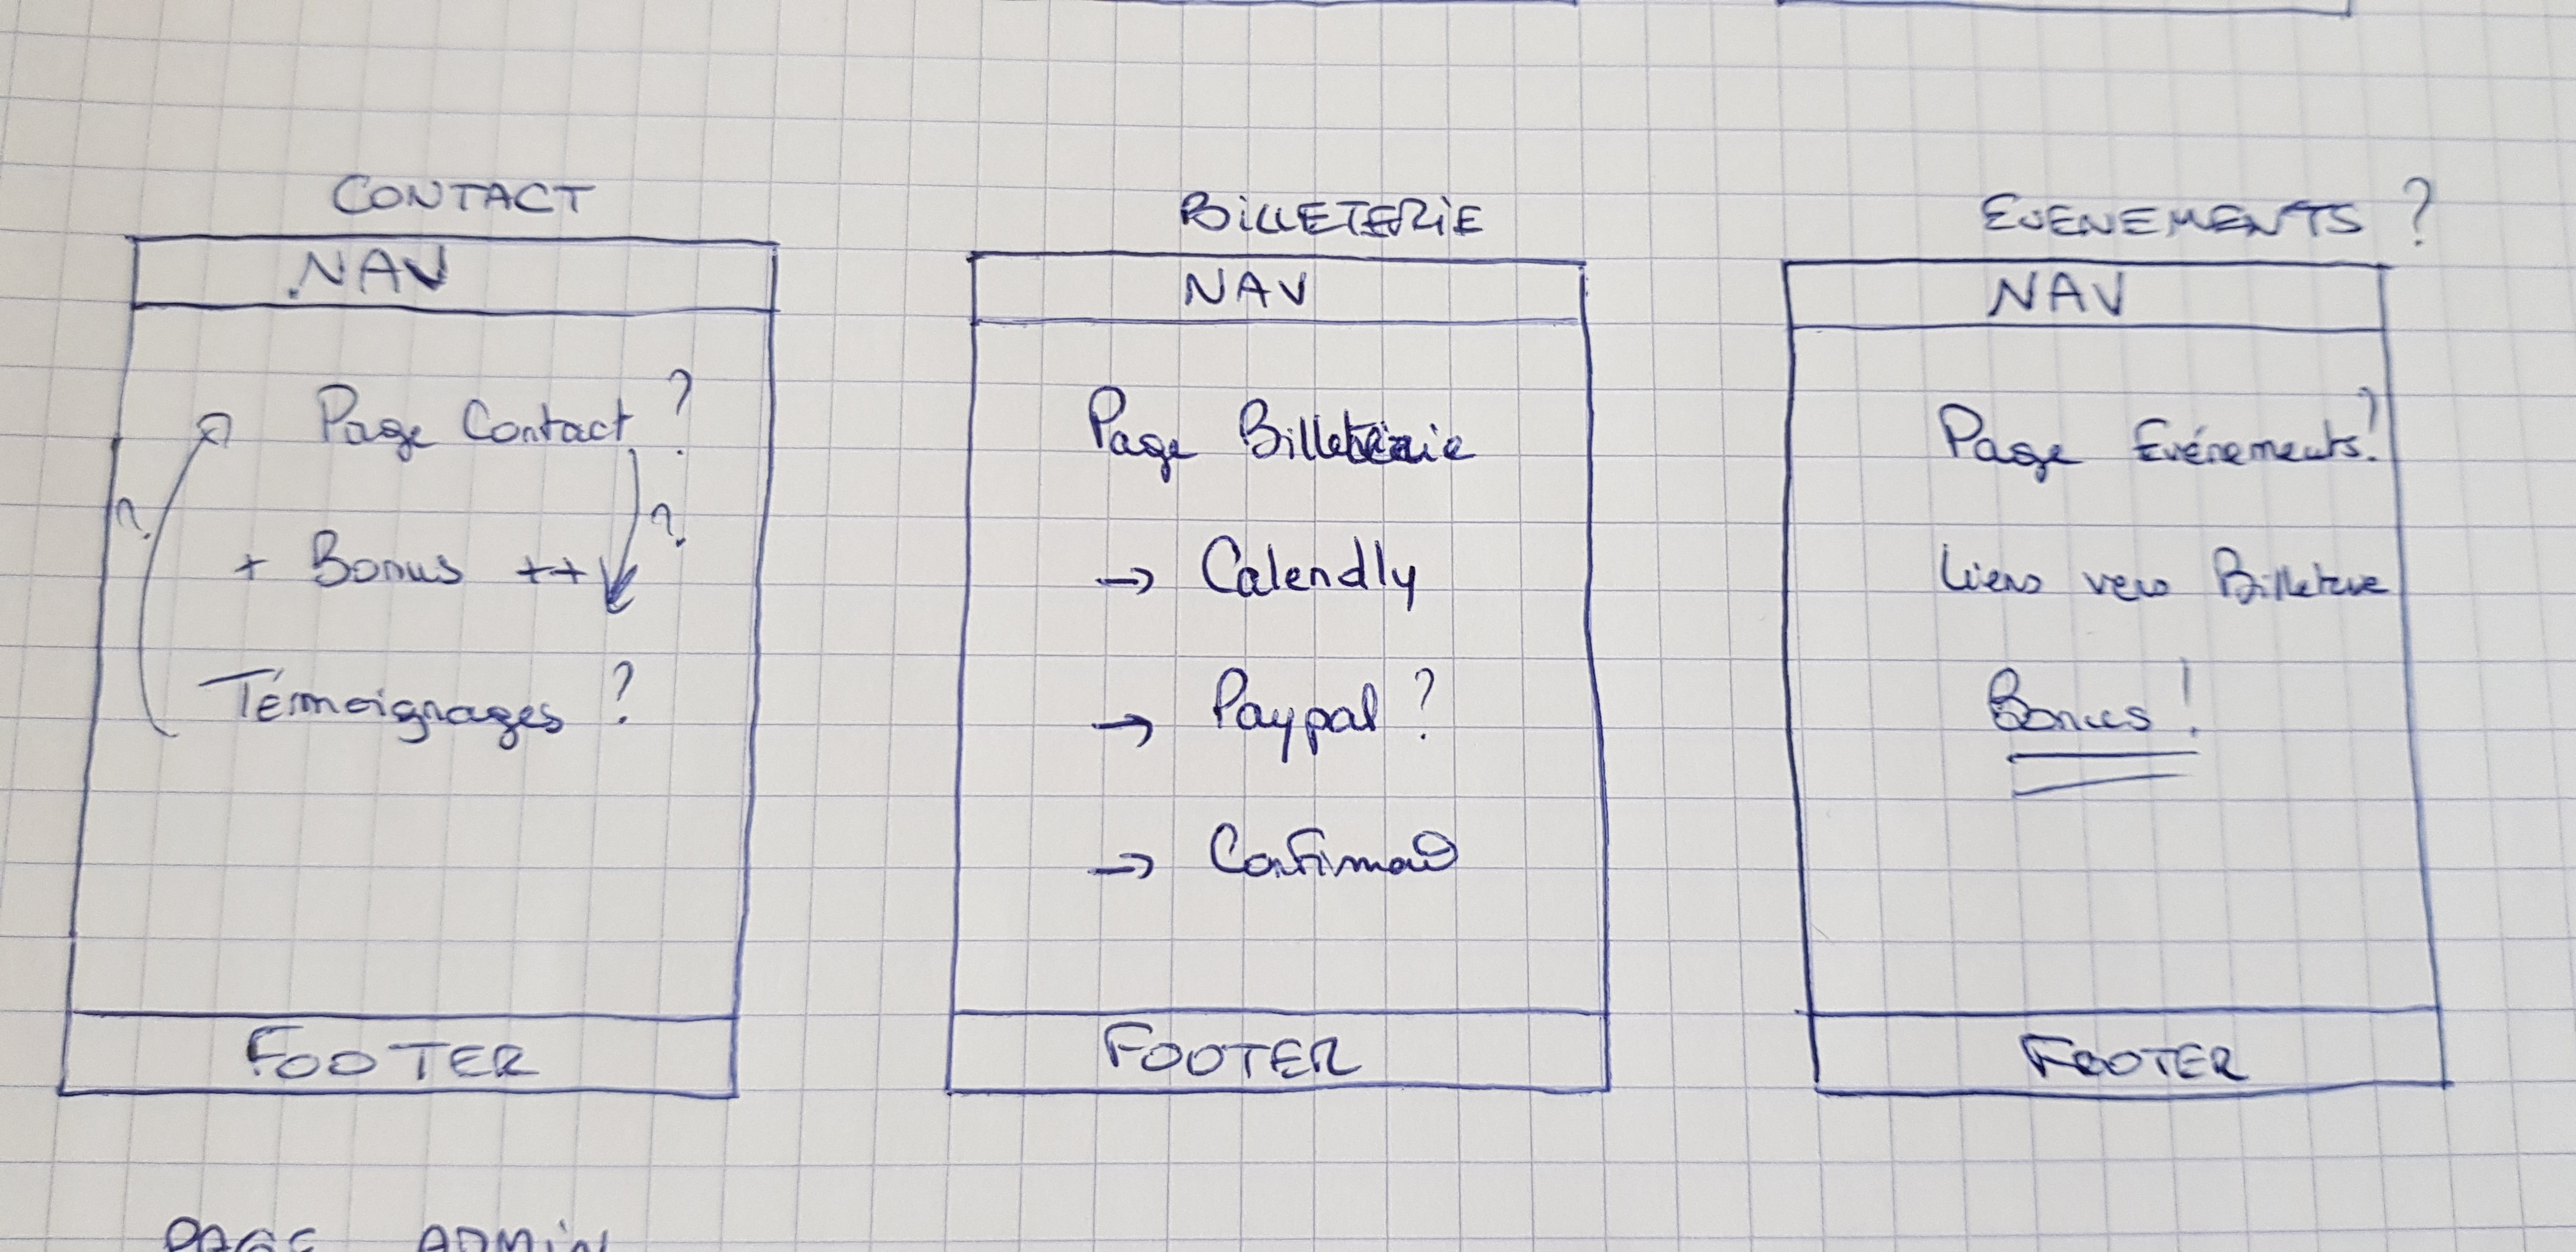 CONTACT
NAV
Page Contact ?
?
?
+ Bonus ++
Témoignages ?
FOOTER
BILLETERIE
NAV
Page Billetterie
→ Calendly
→ Paypal ?
→ Confirmat°
FOOTER
EVENEMENTS ?
NAV
Page Evénements ?
Liens vers Billeterie
Bonus !
FOOTER
PAGE ADMIN